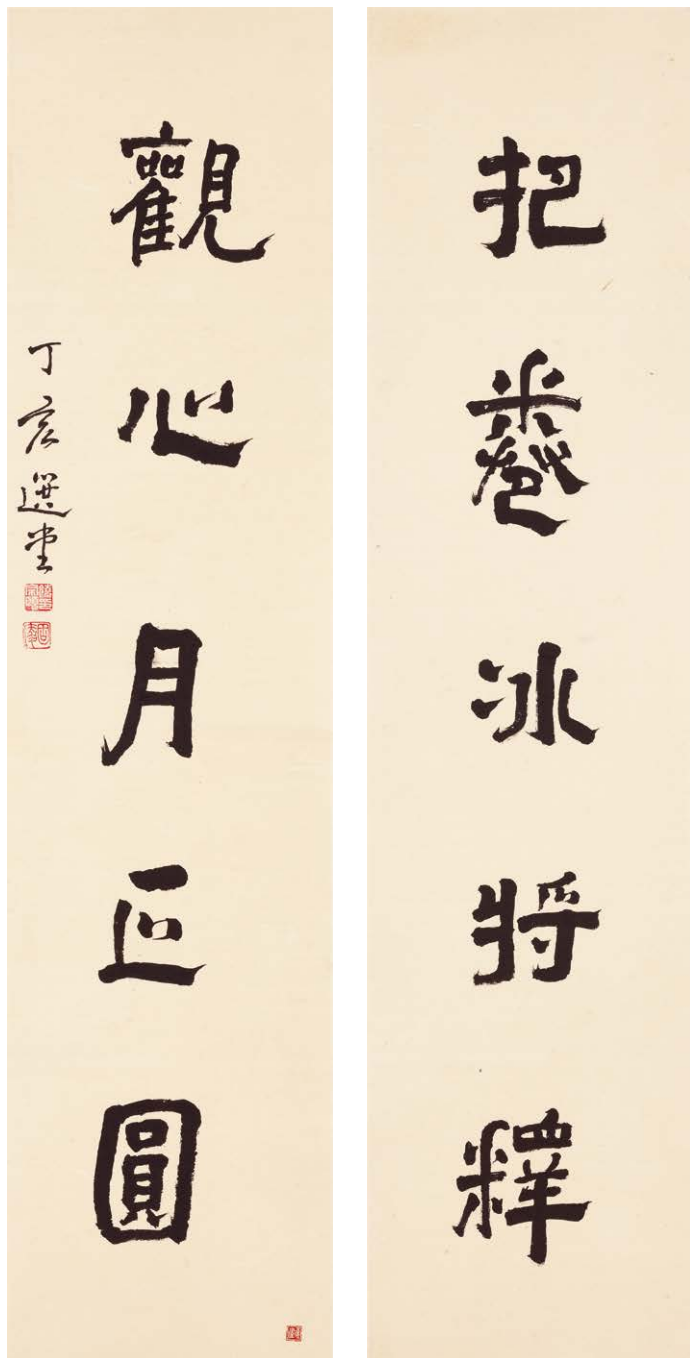 把卷冰將釋
觀心月正圓
丁亥選堂